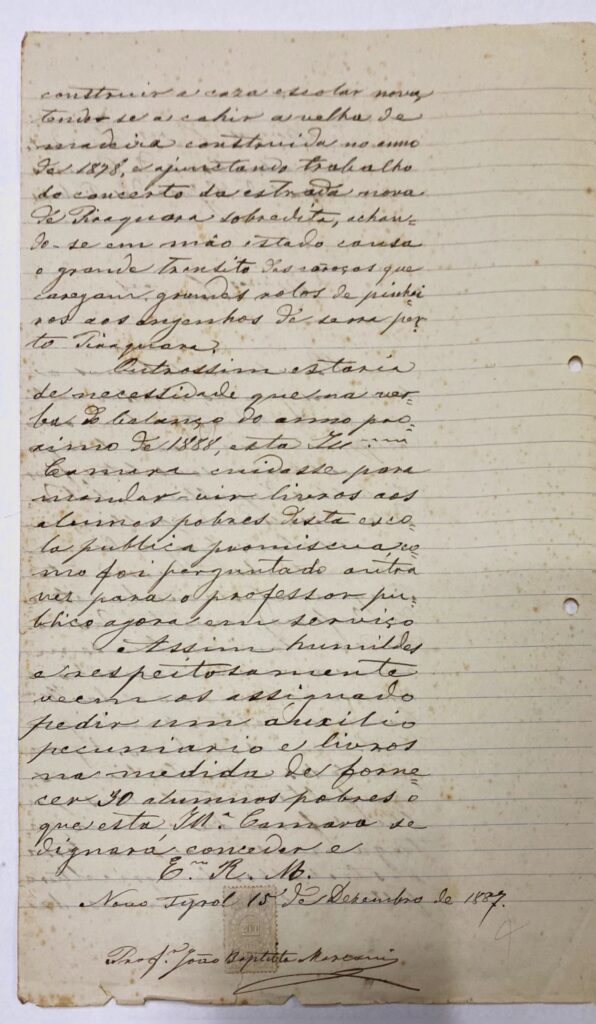 construir a caza escolar nova,
tendo-se a cahir a velha de
madeira construida no anno
de 1878, e ajunctando trabalho
do concerto da estrada nova
de Piraquara sobredita, achan-
do-se em máo estado causa
o grande transito das caroças que
caregam grandes rolos de pinhei-
ros aos engenhos de serra per-
to Piraquara.
Outrossim estaria
de necessidade que na ver-
ba do balanço do anno pro-
ximo de 1888, esta Illma
Camara cuidasse para
mandar vir livros aos
alumnos pobres desta esco-
la publica promiscua, co-
mo foi perguntado outra
vez para o professor pu-
blico agora em serviço
Assim humildes
e respeitosamente
veem os assignado
pedir um auxilio
pecuniario e livros
na medida de forne-
cer 30 alumnos pobres o
que esta Ill.a Camara se
dignará conceder e
E. R. M.
Novo Tyrol 15 de Dezembro de 1887.
200
Prof.r João Baptista